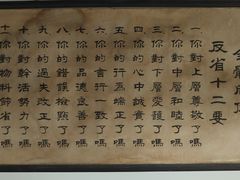 反省十二要
一你對上層尊敬了嗎
二你對中層和睦了嗎
三你對下層愛護了嗎
四你的心中誠實了嗎
五你的行為端正了嗎
六你的言行一致了嗎
七你的品德良善了嗎
八你的錯誤檢點了嗎
九你的過失改正了嗎
十你對幹活努力了嗎
十一你對物料節省了嗎